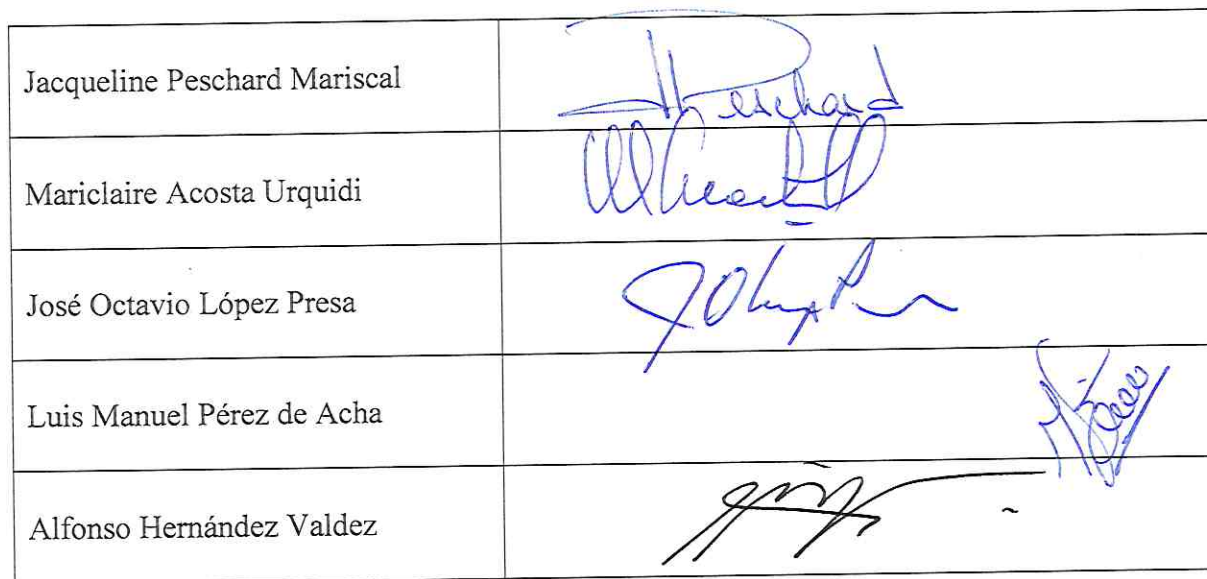 Jacqueline Peschard Mariscal
Peschard
Mariclaire Acosta Urquidi
José Octavio López Presa
Luis Manuel Pérez de Acha
Alfonso Hernández Valdez